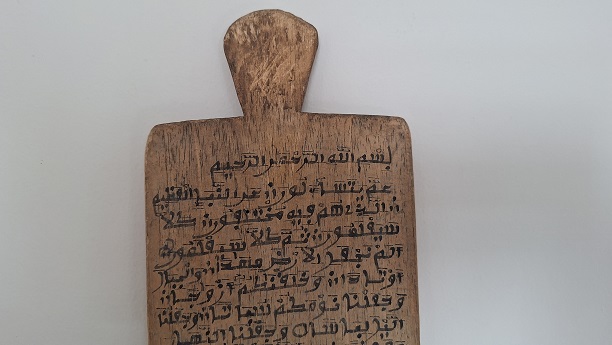 بسم الله الرحمن الرحيم
عم يتساءلون عن النبإ العظيم
الذي هم فيه مختلفون كلا
سيعلمون ثم كلا سيعلمون
الم نجعل الارض مهدا والجبال
اوتادا وخلقنكم ازوجا
وجعلنا نومكم سباتا وجعلنا
اليل لباسا وجعلنا النهار